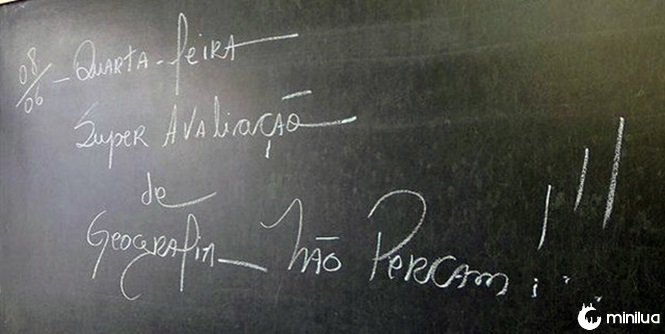 08/06 - Quarta-feira
Super Avaliação
de
Geografia - Não Percam!!!
minilua